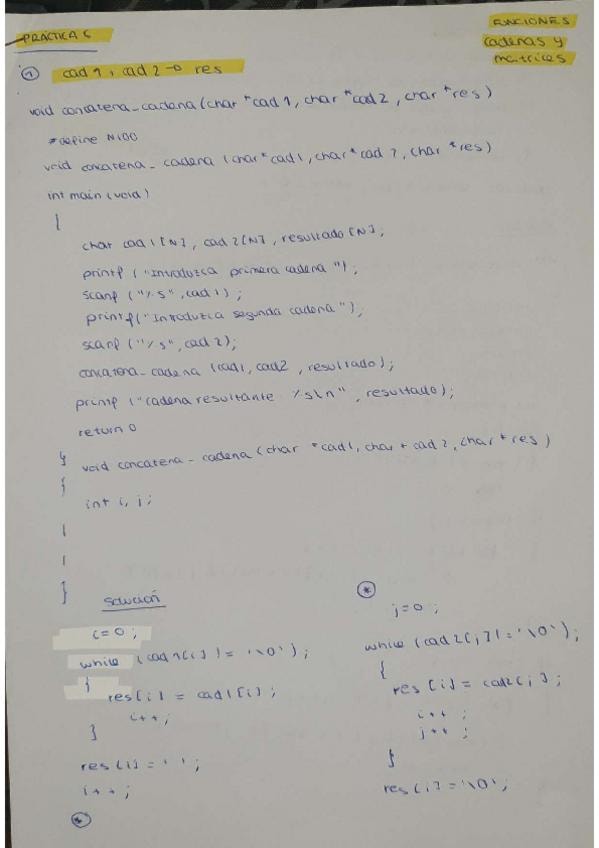 PRÁCTICA 6
FUNCIONES
cadenas y
matrices
① cad1, cad2 → res
void concatena_cadena (char *cad1, char *cad2, char *res)
#define N100
void concatena_cadena (char*cad1, char* cad2, char *res)
int main (void)
{
char cad1[N], cad2[N], resultado[N];
printf ("Introduzca primera cadena");
scanf ("%s", cad1);
printf("Introduzca segunda cadena");
scanf ("%s", cad2);
concatena_cadena (cad1, cad2, resultado);
printf ("cadena resultante %s\n", resultado);
return 0
}
void concatena_cadena (char *cad1, char * cad2, char *res)
{
int i, j;
|
|
}
solución
i=0;
while (cad1[i] != '\0');
{
res[i] = cad1[i];
i++;
}
res[i]=' ';
i++;
*
*
j=0;
while (cad2[j] != '\0');
{
res[i] = cad2[j];
i++;
j++;
}
res[i]='\0';